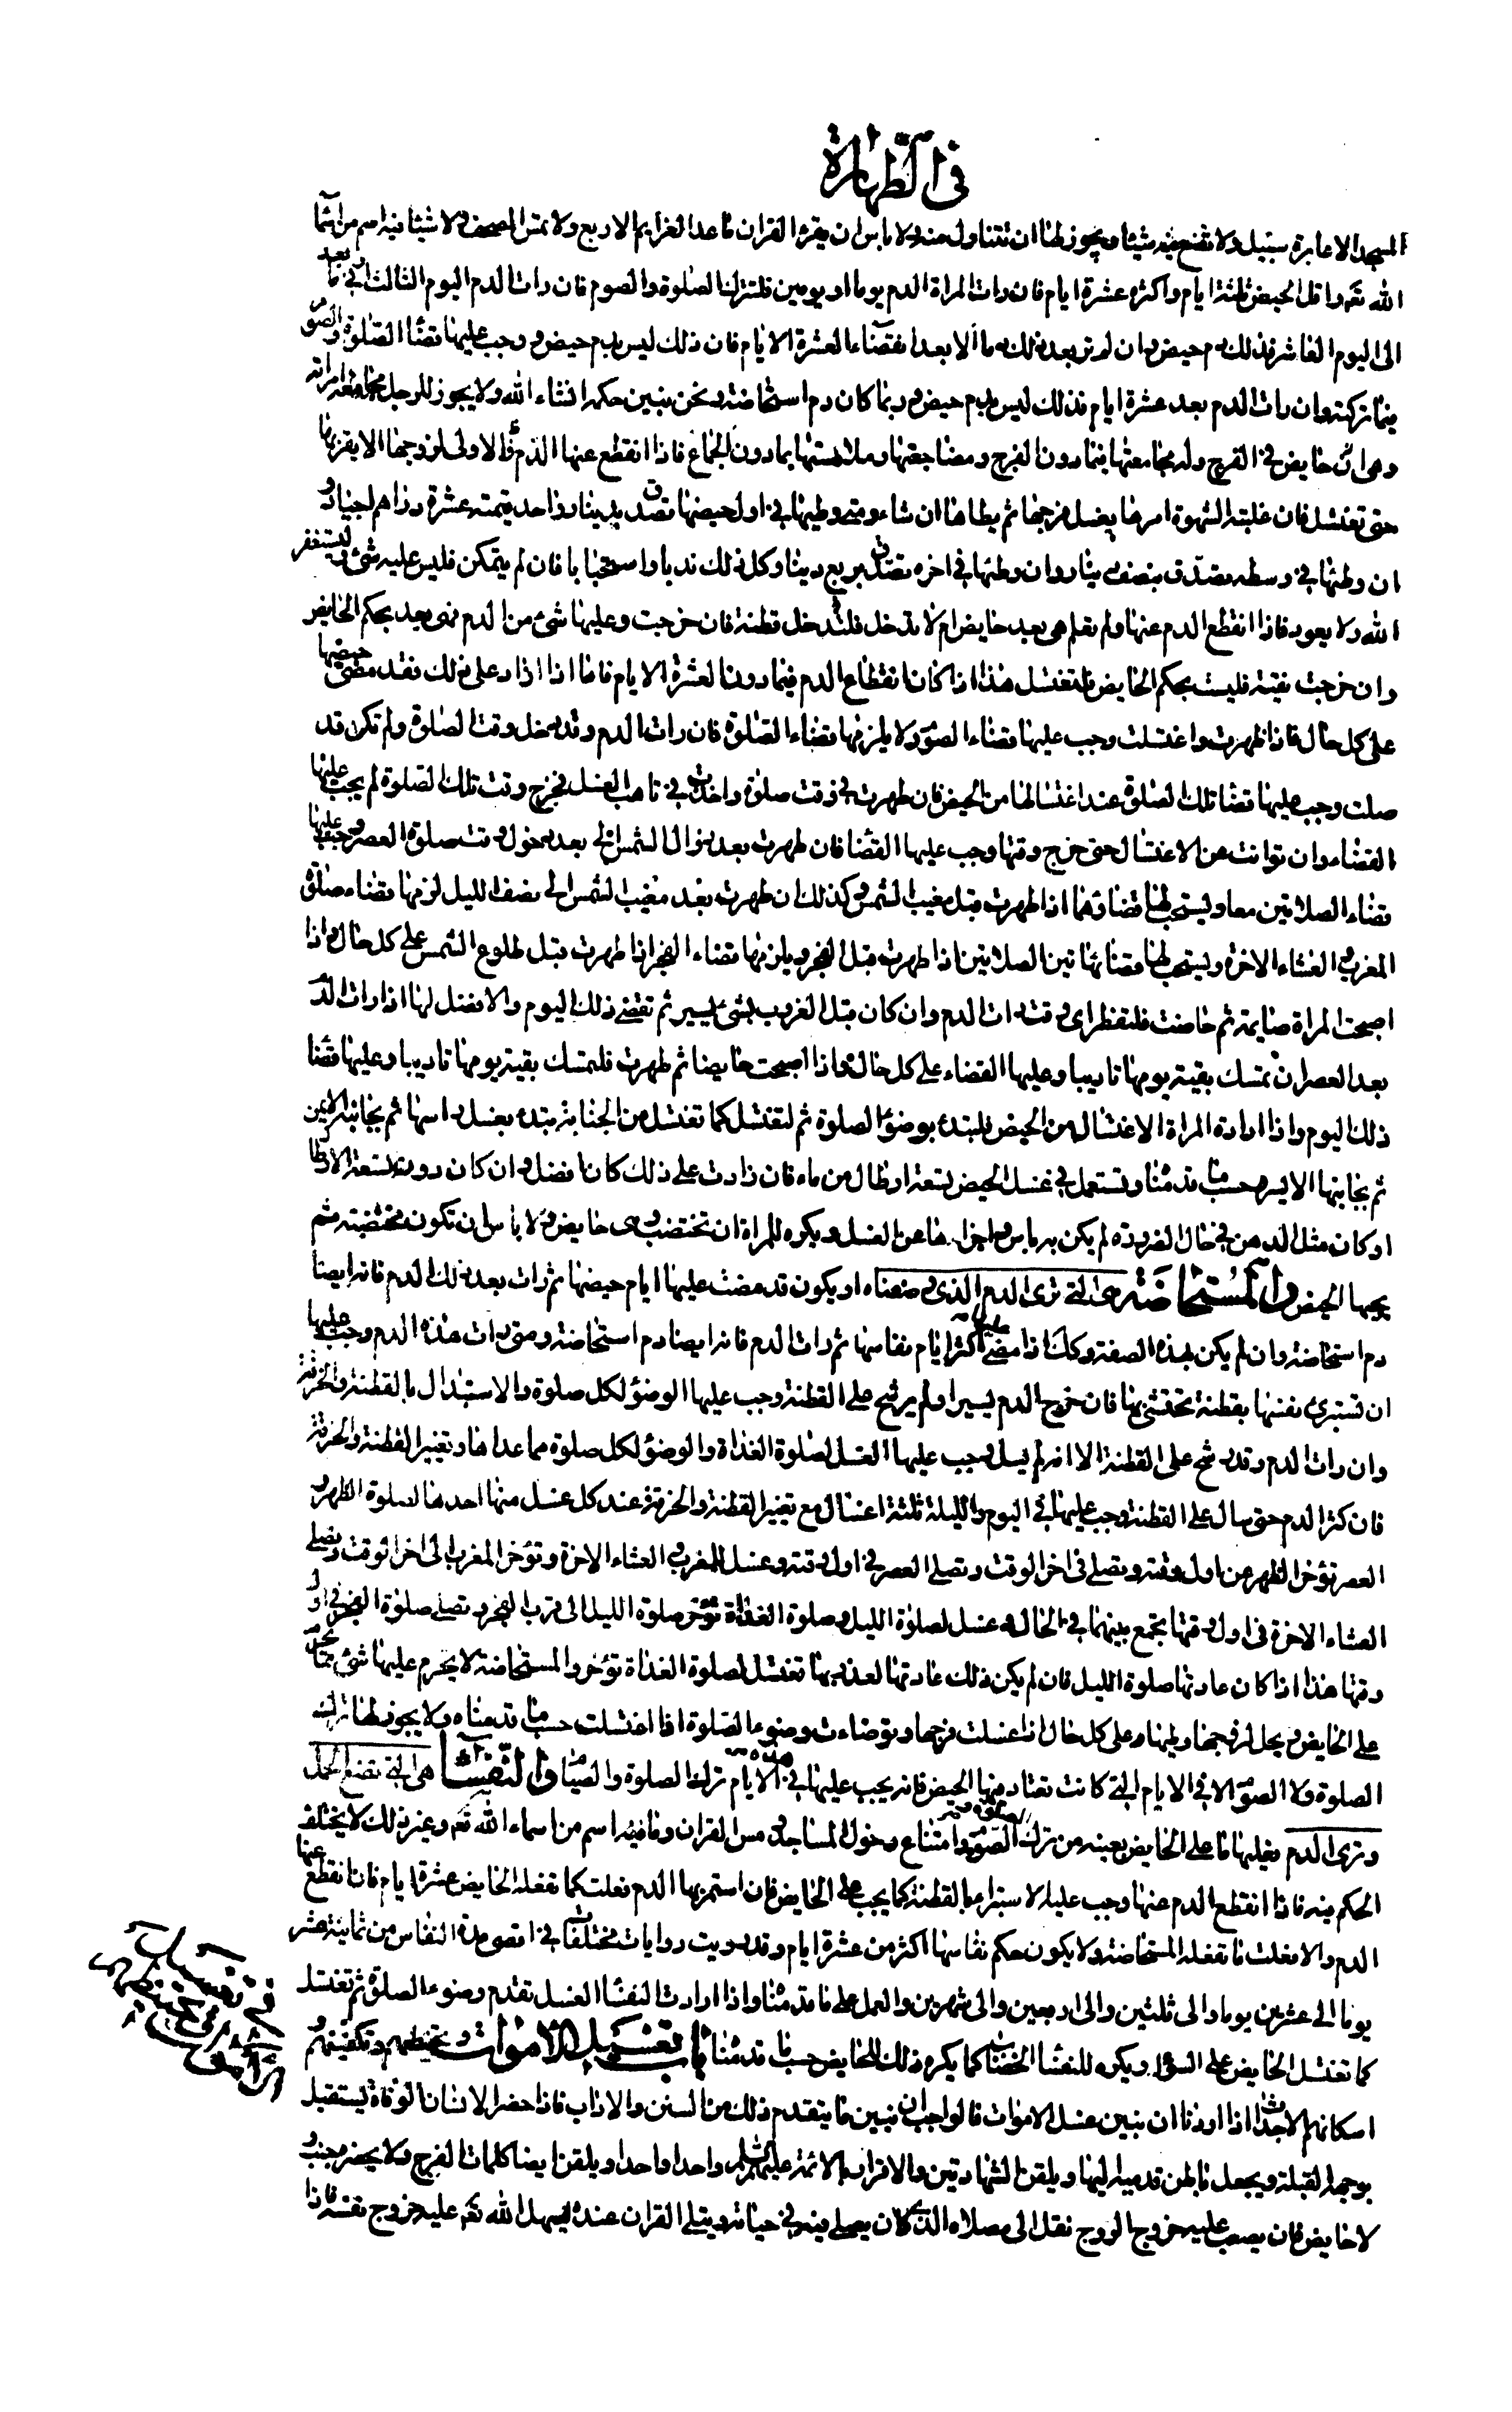 في الطهارة
المسجد الا عابرة سبيل ولا تضع فيه شيئا ويجوز لها ان تتناول منه ولا باس ان يقرء القران ما عدا العزايم الاربع ولا تمس المصحف ولا شيئا فيه اسم من اسماء
الله تعم واقل الحيض ثلثة ايام واكثره عشرة ايام فان رات المراة الدم يوما او يومين فلتترك الصلوة والصوم فان رات الدم اليوم الثالث وفي ما بعد
الى اليوم العاشر فذلك دم حيض وان لم تر بعد ذلك دما الا بعد انقضاء العشرة الايام فان ذلك ليس بدم حيض ووجب عليها قضاء الصلوة والصوم
فيما تركته وان رات الدم بعد عشرة ايام فذلك ليس بدم حيض وربما كان دم استحاضة ونحن نبين حكمه انشاء الله ولا يجوز للرجل مجامعة امراته
وهي حايض في الفرج وله مجامعتها فيما دون الفرج ومضاجعتها وملامستها بما دون الجماع فاذا انقطع عنها الدم فالاولى لزوجها الا يقربها
حتى تغتسل فان غلبته الشهوة امرها بغسل فرجها ثم يطاها ان شاء ومتى وطيها في اول حيضها تصدق بدينار واحد قيمته عشرة دراهم جياد و
ان وطئها في وسطه تصدق بنصف دينار وان وطئها في اخره تصدق بربع دينار وكل ذلك ندبا واستحبابا فان لم يتمكن فليس عليه شئ وليستغفر
الله ولا يعود فاذا انقطع الدم عنها ولم تعلم هي بعد حايض ام لا تدخل فلتدخل قطنة فان خرجت وعليها شئ من الدم فهي بعد بحكم الحايض
وان خرجت نقية فليست بحكم الحايض فلتغتسل هذا اذا كان انقطاع الدم فيما دون العشرة الايام فاما اذا زاد على ذلك فقد مضى حيضها
على كل حال فاذا طهرت واغتسلت وجب عليها قضاء الصوم ولا يلزمها قضاء الصلوة فان رات الدم وقد دخل وقت الصلوة ولم تكن قد
صلت وجب عليها قضا تلك الصلوة عند اغتسالها من الحيض فان طهرت في وقت صلوة واخذت في تاهب الغسل فخرج وقت تلك الصلوة لم يجب عليها
القضاء وان توانت عن الاغتسال حتى خرج وقتها وجب عليها القضا فان طهرت بعد زوال الشمس الى بعد دخول وقت صلوة العصر وجب عليها
قضاء الصلاتين معا ويستحب لها قضاؤهما اذا طهرت قبل مغيب الشمس وكذلك ان طهرت بعد مغيب الشمس الى نصف الليل لزمها قضاء صلوة
المغرب والعشاء الاخرة ويستحب لها قضا هاتين الصلاتين اذا طهرت قبل الفجر ويلزمها قضاء الفجر اذا طهرت قبل طلوع الشمس على كل حال واذا
اصبحت المراة صايمة ثم حاضت فلتفطر اى وقت رات الدم وان كان قبل الغروب بشئ يسير ثم تقضي ذلك اليوم والافضل لها اذا رات الدم
بعد العصر ان تمسك بقية يومها تاديبا وعليها القضاء على كل حال واذا اصبحت حايضا ثم طهرت فلتمسك بقية يومها تاديبا وعليها قضا
ذلك اليوم واذا ارادة المراة الاغتسال من الحيض فلتبتدء بوضوء الصلوة ثم لتغتسل كما تغتسل من الجنابة تبتدء بغسل راسها ثم بجانبها الايمن
ثم بجانبها الايسر حسب ما قدمنا وتستعمل في غسل الحيض تسعة ارطال من ماء فان زادت على ذلك كان افضل وان كان دون التسعة الارطال
او كان مثل الدهن في حال الضرورة لم يكن به باس واجزاها من الغسل ويكره للمراة ان تختضب وهي حايض ولا باس ان تكون مختضبة ثم
يجيها الحيض والمستحاضة هي التي ترى الدم الذي وصفناه او يكون قد مضت عليها ايام حيضها ثم رات بعد ذلك الدم فانه ايضا
دم استحاضة وان لم يكن بهذه الصفة وكك اذا مضى عليها اكثر ايام نفاسها ثم رات الدم فانه ايضا دم استحاضة ومتى رات هذا الدم وجب عليها
ان تستبرئ نفسها بقطنة تحتشي بها فان خرج الدم يسيرا ولم يرشح على القطنة وجب عليها الوضوء لكل صلوة والاستبدال بالقطنة والخرقة
وان رات الدم وقد رشح على القطنة الا انه لم يسل وجب عليها الغسل لصلوة الغداة والوضوء لكل صلوة مما عداها وتغيير القطنة والخرقة
فان كثر الدم حتى سال على القطنة وجب عليها في اليوم والليلة ثلثة اغسال مع تغيير القطنة والخرقة عند كل غسل منها احدها لصلوة الظهر و
العصر تؤخر الظهر عن اول وقته وتصلي في اخر الوقت وتصلي العصر في اول وقته وغسل للمغرب والعشاء الاخرة وتؤخر المغرب الى اخر الوقت وتصلي
العشاء الاخرة في اول وقتها تجمع بينهما في الحال وغسل لصلوة الليل وصلوة الغداة تؤخر صلوة الليل الى قرب الفجر وتصلي صلوة الفجر في اول
وقتها هذا اذا كان عادتها صلوة الليل فان لم يكن ذلك عادتها لعذر بها تغتسل لصلوة الغداة تؤخر والمستحاضة لا يحرم عليها شئ مما يحرم
على الحايض ويحل لزوجها وطيها على كل حال اذا غسلت فرجها وتوضات وضوء الصلوة اذا اغتسلت حسب ما قدمناه ولا يجوز لها ترك
الصلوة ولا الصوم الا في الايام التي كانت تعتاد فيها الحيض فانه يجب عليها في هذه الايام ترك الصلوة والصيام والنفساء هي التي تضع الحمل
وترى الدم فعليها ما على الحايض بعينه من ترك الصلوة والصوم وامتناع دخول المساجد ومس القران وما فيه اسم من اسماء الله تعم وغير ذلك لا يختلف
الحكم فيه فاذا انقطع الدم عنها وجب عليها الاستبراء بالقطنة كما يجب على الحايض فان استمر بها الدم فعلت كما تفعله الحايض عشرة ايام فان انقطع عنها
الدم والا فعلت ما تفعله المستحاضة ولا يكون حكم نفاسها اكثر من عشرة ايام وقد رويت روايات مختلفات في اقصى مدة النفاس من ثمانية عشر
يوما الى عشرين يوما والى ثلثين والى اربعين والى شهرين والعمل على ما قدمنا واذا ارادت النفسا الغسل تقدم وضوء الصلوة ثم تغتسل
كما تغتسل الحايض على السواء ويكره للنفسا الخضاب كما يكره ذلك للحايض حسب ما قدمنا باب تغسيل الاموات وتحنيطهم وتكفينهم و
اسكانهم الاجداث اذا اردنا ان نبين غسل الاموات فالواجب ان نبين ما يتقدم ذلك من السنن والاداب فاذا حضر الانسان الوفاة يستقبل
بوجهه القبلة ويجعل باطن قدميه اليها ويلقن الشهادتين والاقرار بالائمة عليهم السلام واحدا واحدا ويلقن ايضا كلمات الفرج ولا يحضره جنب و
لا حايض فان يصعب عليه خروج الروح نقل الى مصلاه الذي كان يصلي فيه في حياته ويتلى القران عنده ليسهل الله تعم عليه خروج نفسه فاذا
في تغسيل
الاموات